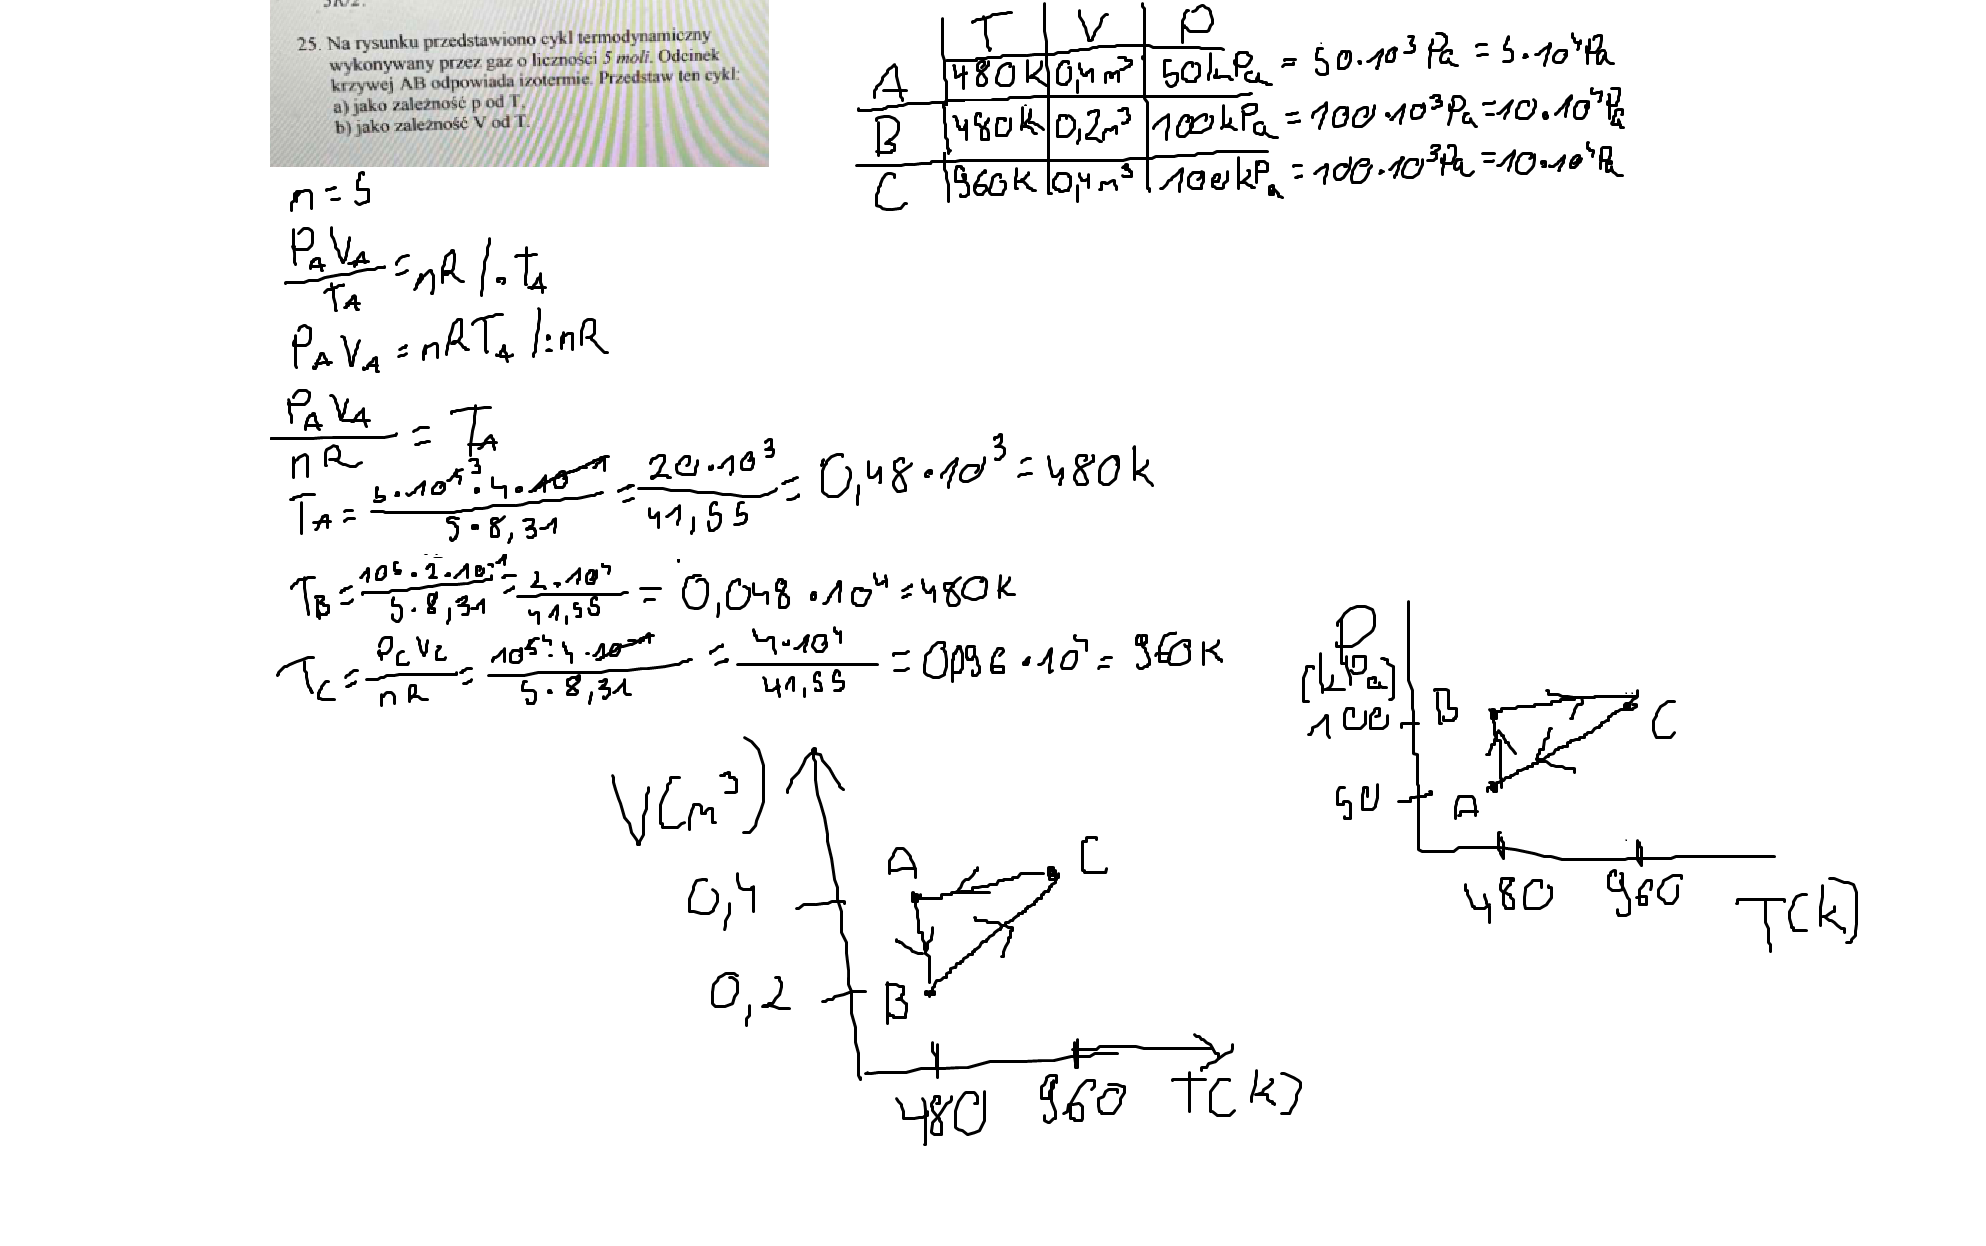 25. Na rysunku przedstawiono cykl termodynamiczny
wykonywany przez gaz o liczności 5 moli. Odcinek
krzywej AB odpowiada izotermie. Przedstaw ten cykl:
a) jako zależność p od T.
b) jako zależność V od T.
T V P
A 480K 0,4m³ 50kPa = 50·10³Pa = 5·10⁴Pa
B 480K 0,2m³ 100kPa = 100·10³Pa = 10·10⁴Pa
C 960K 0,4m³ 100kPa = 100·10³Pa = 10·10⁴Pa
n = 5
P_A V_A / T_A = nR /· t_A
P_A V_A = nRT_A /:nR
P_A V_A / nR = T_A
T_A = 5·10⁵³·4·10⁻¹ / 5·8,31 = 20·10³ / 41,55 = 0,48·10³ = 480k
T_B = 10⁵·2·10⁻¹ / 5·8,31 = 2·10⁴ / 41,55 = 0,048·10⁴ = 480K
T_C = P_C V_C / nR = 10⁵⁴·4·10⁻¹ / 5·8,31 = 4·10⁴ / 41,55 = 0,096·10⁴ = 960K
P
[kPa]
100 B C
50 A
480 960 T(k)
V(m³)
A C
0,4
0,2 B
480 960 T(k)